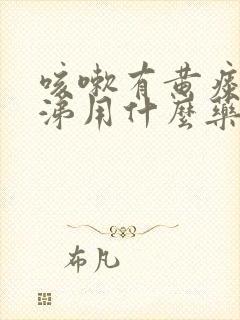 咳嗽有黄痰
涕用什麼藥
布凡